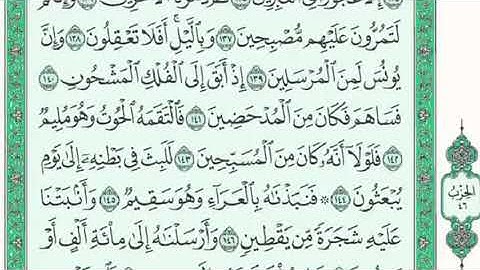 لَتَمُرُّونَ عَلَيْهِم مُّصْبِحِينَ ١٣٧ وَبِٱلَّيْلِۗ أَفَلَا تَعْقِلُونَ ١٣٨ وَإِنَّ
يُونُسَ لَمِنَ ٱلْمُرْسَلِينَ ١٣٩ إِذْ أَبَقَ إِلَى ٱلْفُلْكِ ٱلْمَشْحُونِ ١٤٠
فَسَاهَمَ فَكَانَ مِنَ ٱلْمُدْحَضِينَ ١٤١ فَٱلْتَقَمَهُ ٱلْحُوتُ وَهُوَ مُلِيمٌ
١٤٢ فَلَوْلَآ أَنَّهُۥ كَانَ مِنَ ٱلْمُسَبِّحِينَ ١٤٣ لَلَبِثَ فِى بَطْنِهِۦٓ إِلَىٰ يَوْمِ
يُبْعَثُونَ ١٤٤ ۞ فَنَبَذْنَٰهُ بِٱلْعَرَآءِ وَهُوَ سَقِيمٌ ١٤٥ وَأَنۢبَتْنَا
عَلَيْهِ شَجَرَةً مِّن يَقْطِينٍ ١٤٦ وَأَرْسَلْنَٰهُ إِلَىٰ مِا۟ئَةِ أَلْفٍ أَوْ
الحزب
٤٦